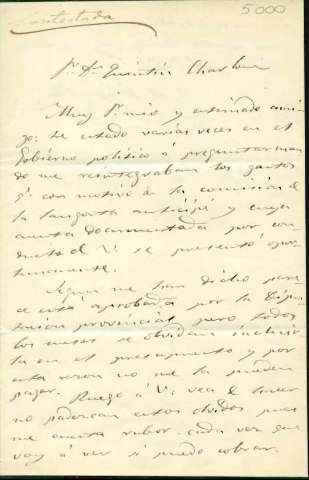 Contestada
5000
Sr. Dn. Quintín Chiarlone
Muy Sr. mio y estimado ami-
go: he estado varias veces en el
Gobierno político á preguntar cuan
do me reintegraban los gastos
qe. con motivo de la comision de
la langosta anticipé y cuya
cuenta documentada por con-
ducto de V. se presentó opor-
tunamente.
Segun me han dicho pare-
ce está aprobada por la Dipu-
tacion provincial, pero todos
los meses se olvidan incluir
la en el presupuesto y por
esta razon no me la pueden
pagar. Ruego á V. vea de hacer
no padezcan estos olvidos pues
me cuesta rubor cada vez que
voy á ver si puedo cobrar.